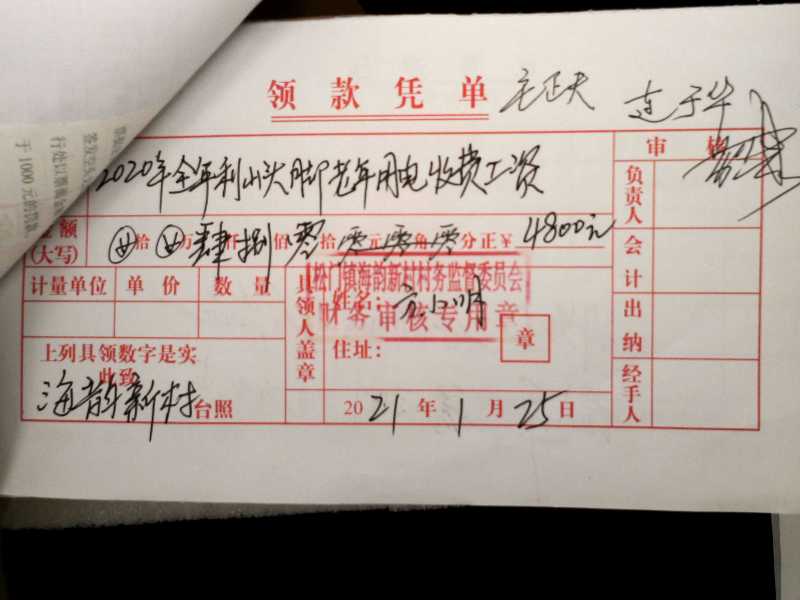 领款凭单
审核
2020年全年利山头脚老年用电收费工资
金额
(大写)
拾万肆仟捌佰零拾零元零角零分正¥4800元
计量单位 单价 数量
具领人盖章
姓名:
住址:
章
松门镇海韵新村村务监督委员会
财务审核专用章
上列具领数字是实
此致
海韵新村台照
2021年1月25日
负责人
会计
出纳
经手人
行处以票面
于1000元的罚款